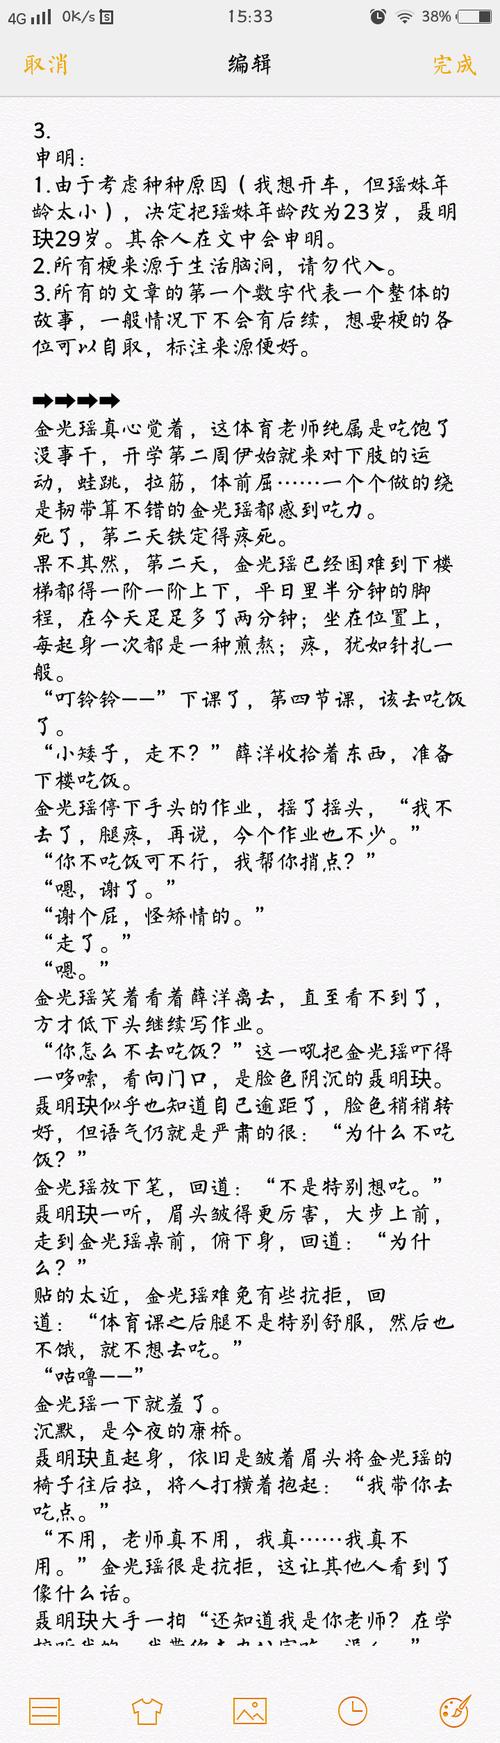 4G 0K/s S 15:33 38%
取消 编辑 完成
3.
申明：
1.由于考虑种种原因（我想开车，但瑶妹年
龄太小），决定把瑶妹年龄改为23岁，聂明
玦29岁。其余人在文中会申明。
2.所有梗来源于生活脑洞，请勿代入。
3.所有的文章的第一个数字代表一个整体的
故事，一般情况下不会有后续，想要梗的各
位可以自取，标注来源便好。
➡➡➡➡
金光瑶真心觉着，这体育老师纯属是吃饱了
没事干，开学第二周伊始就来对下肢的运
动，蛙跳，拉筋，体前屈……一个个做的绕
是韧带算不错的金光瑶都感到吃力。
死了，第二天铁定得疼死。
果不其然，第二天，金光瑶已经困难到下楼
梯都得一阶一阶上下，平日里半分钟的脚
程，在今天足足多了两分钟；坐在位置上，
每起身一次都是一种煎熬；疼，犹如针扎一
般。
“叮铃铃——”下课了，第四节课，该去吃饭
了。
“小矮子，走不？”薛洋收拾着东西，准备
下楼吃饭。
金光瑶停下手头的作业，摇了摇头，“我不
去了，腿疼，再说，今个作业也不少。”
“你不吃饭可不行，我帮你捎点？”
“嗯，谢了。”
“谢个屁，怪矫情的。”
“走了。”
“嗯。”
金光瑶笑着看着薛洋离去，直至看不到了，
方才低下头继续写作业。
“你怎么不去吃饭？”这一吼把金光瑶吓得
一哆嗦，看向门口，是脸色阴沉的聂明玦。
聂明玦似乎也知道自己逾距了，脸色稍稍转
好，但语气仍就是严肃的很：“为什么不吃
饭？”
金光瑶放下笔，回道：“不是特别想吃。”
聂明玦一听，眉头皱得更厉害，大步上前，
走到金光瑶桌前，俯下身，回道：“为什
么？”
贴的太近，金光瑶难免有些抗拒，回
道：“体育课之后腿不是特别舒服，然后也
不饿，就不想去吃。”
“咕噜——”
金光瑶一下就羞了。
沉默，是今夜的康桥。
聂明玦直起身，依旧是皱着眉头将金光瑶的
椅子往后拉，将人打横着抱起：“我带你去
吃点。”
“不用，老师真不用，我真……我真不
用。”金光瑶很是抗拒，这让其他人看到了
像什么话。
聂明玦大手一拍“还知道我是你老师？在学